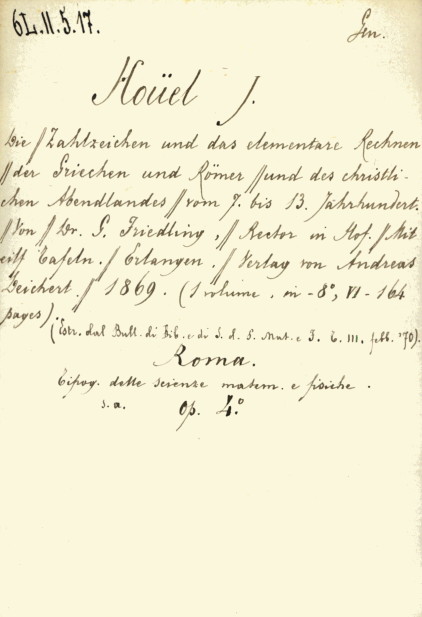 6L.II.5.17.
Gen.
Hoüel J.
Die // Zahlzeichen und das elementare Rechnen
// der Griechen und Römer // und des christli-
chen Abendlandes // vom 7. bis 13. Jahrhundert.
// Von // Dr. G. Friedling, // Rector in Hof. // Mit
eilf Tafeln. // Erlangen. // Verlag von Andreas
Deichert. // 1869. (1 volume, in-8°, VI-164
pages).
(Estr. dal Bull. di Bib. e di S. d. S. Mat. e F. T. III. febb. '70).
Roma.
Tipog. delle scienze matem. e fisiche.
s.a. Op. 4°